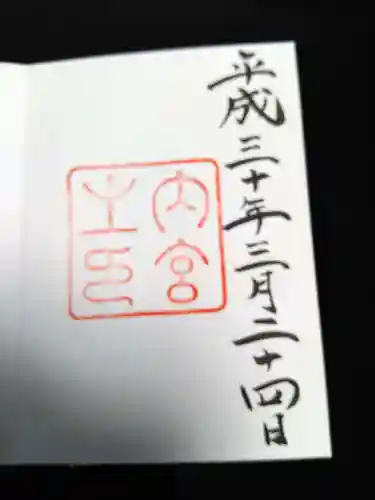 平成三十年三月二十四日
内宮
之印